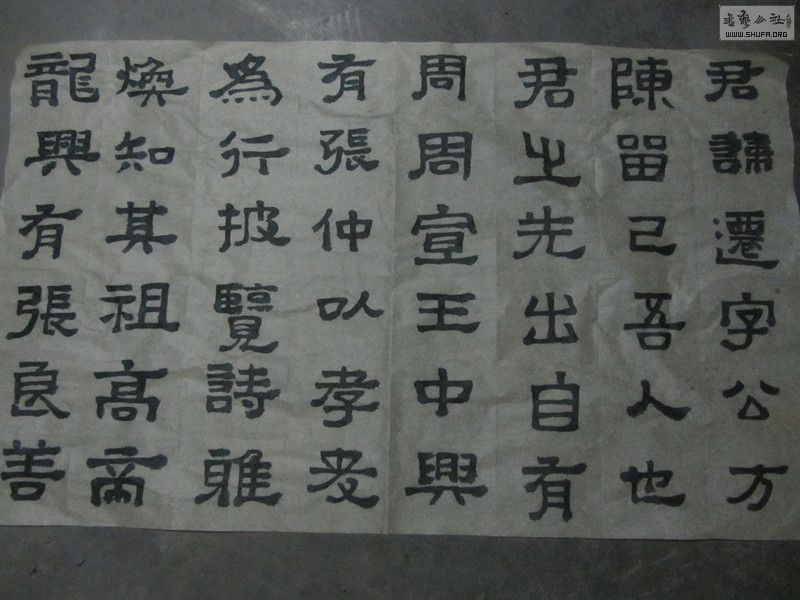 君諱遷字公方
陳留己吾人也
君之先出自有
周周宣王中興
有張仲以孝友
為行披覽詩雅
煥知其祖高帝
龍興有張良善
書藝公社
WWW.SHUFA.ORG